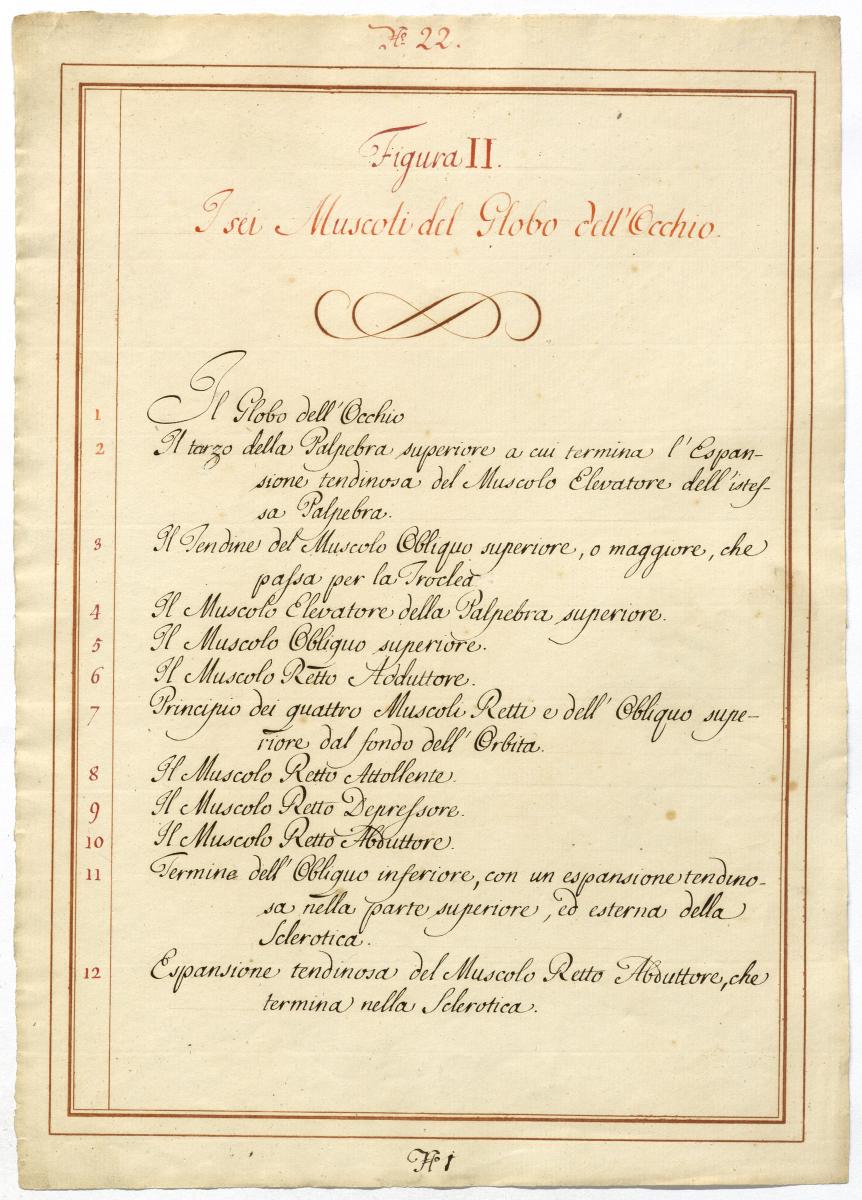 No. 22.
Figura II.
I sei Muscoli del Globo dell'Occhio.
1 Il Globo dell'Occhio
2 Il tarzo della Palpebra superiore a cui termina l'Espan-
sione tendinosa del Muscolo Elevatore dell'istes-
sa Palpebra.
3 Il Tendine del Muscolo Obliquo superiore, o maggiore, che
passa per la Troclea
4 Il Muscolo Elevatore della Palpebra superiore.
5 Il Muscolo Obliquo superiore.
6 Il Muscolo Retto Adduttore.
7 Principio dei quattro Muscoli Retti e dell'Obliquo supe-
riore dal fondo dell'Orbita.
8 Il Muscolo Retto Attollente.
9 Il Muscolo Retto Depressore.
10 Il Muscolo Retto Abduttore.
11 Termine dell'Obliquo inferiore, con un espansione tendino-
sa nella parte superiore, ed esterna della
Sclerotica.
12 Espansione tendinosa del Muscolo Retto Abduttore, che
termina nella Sclerotica.
No 1